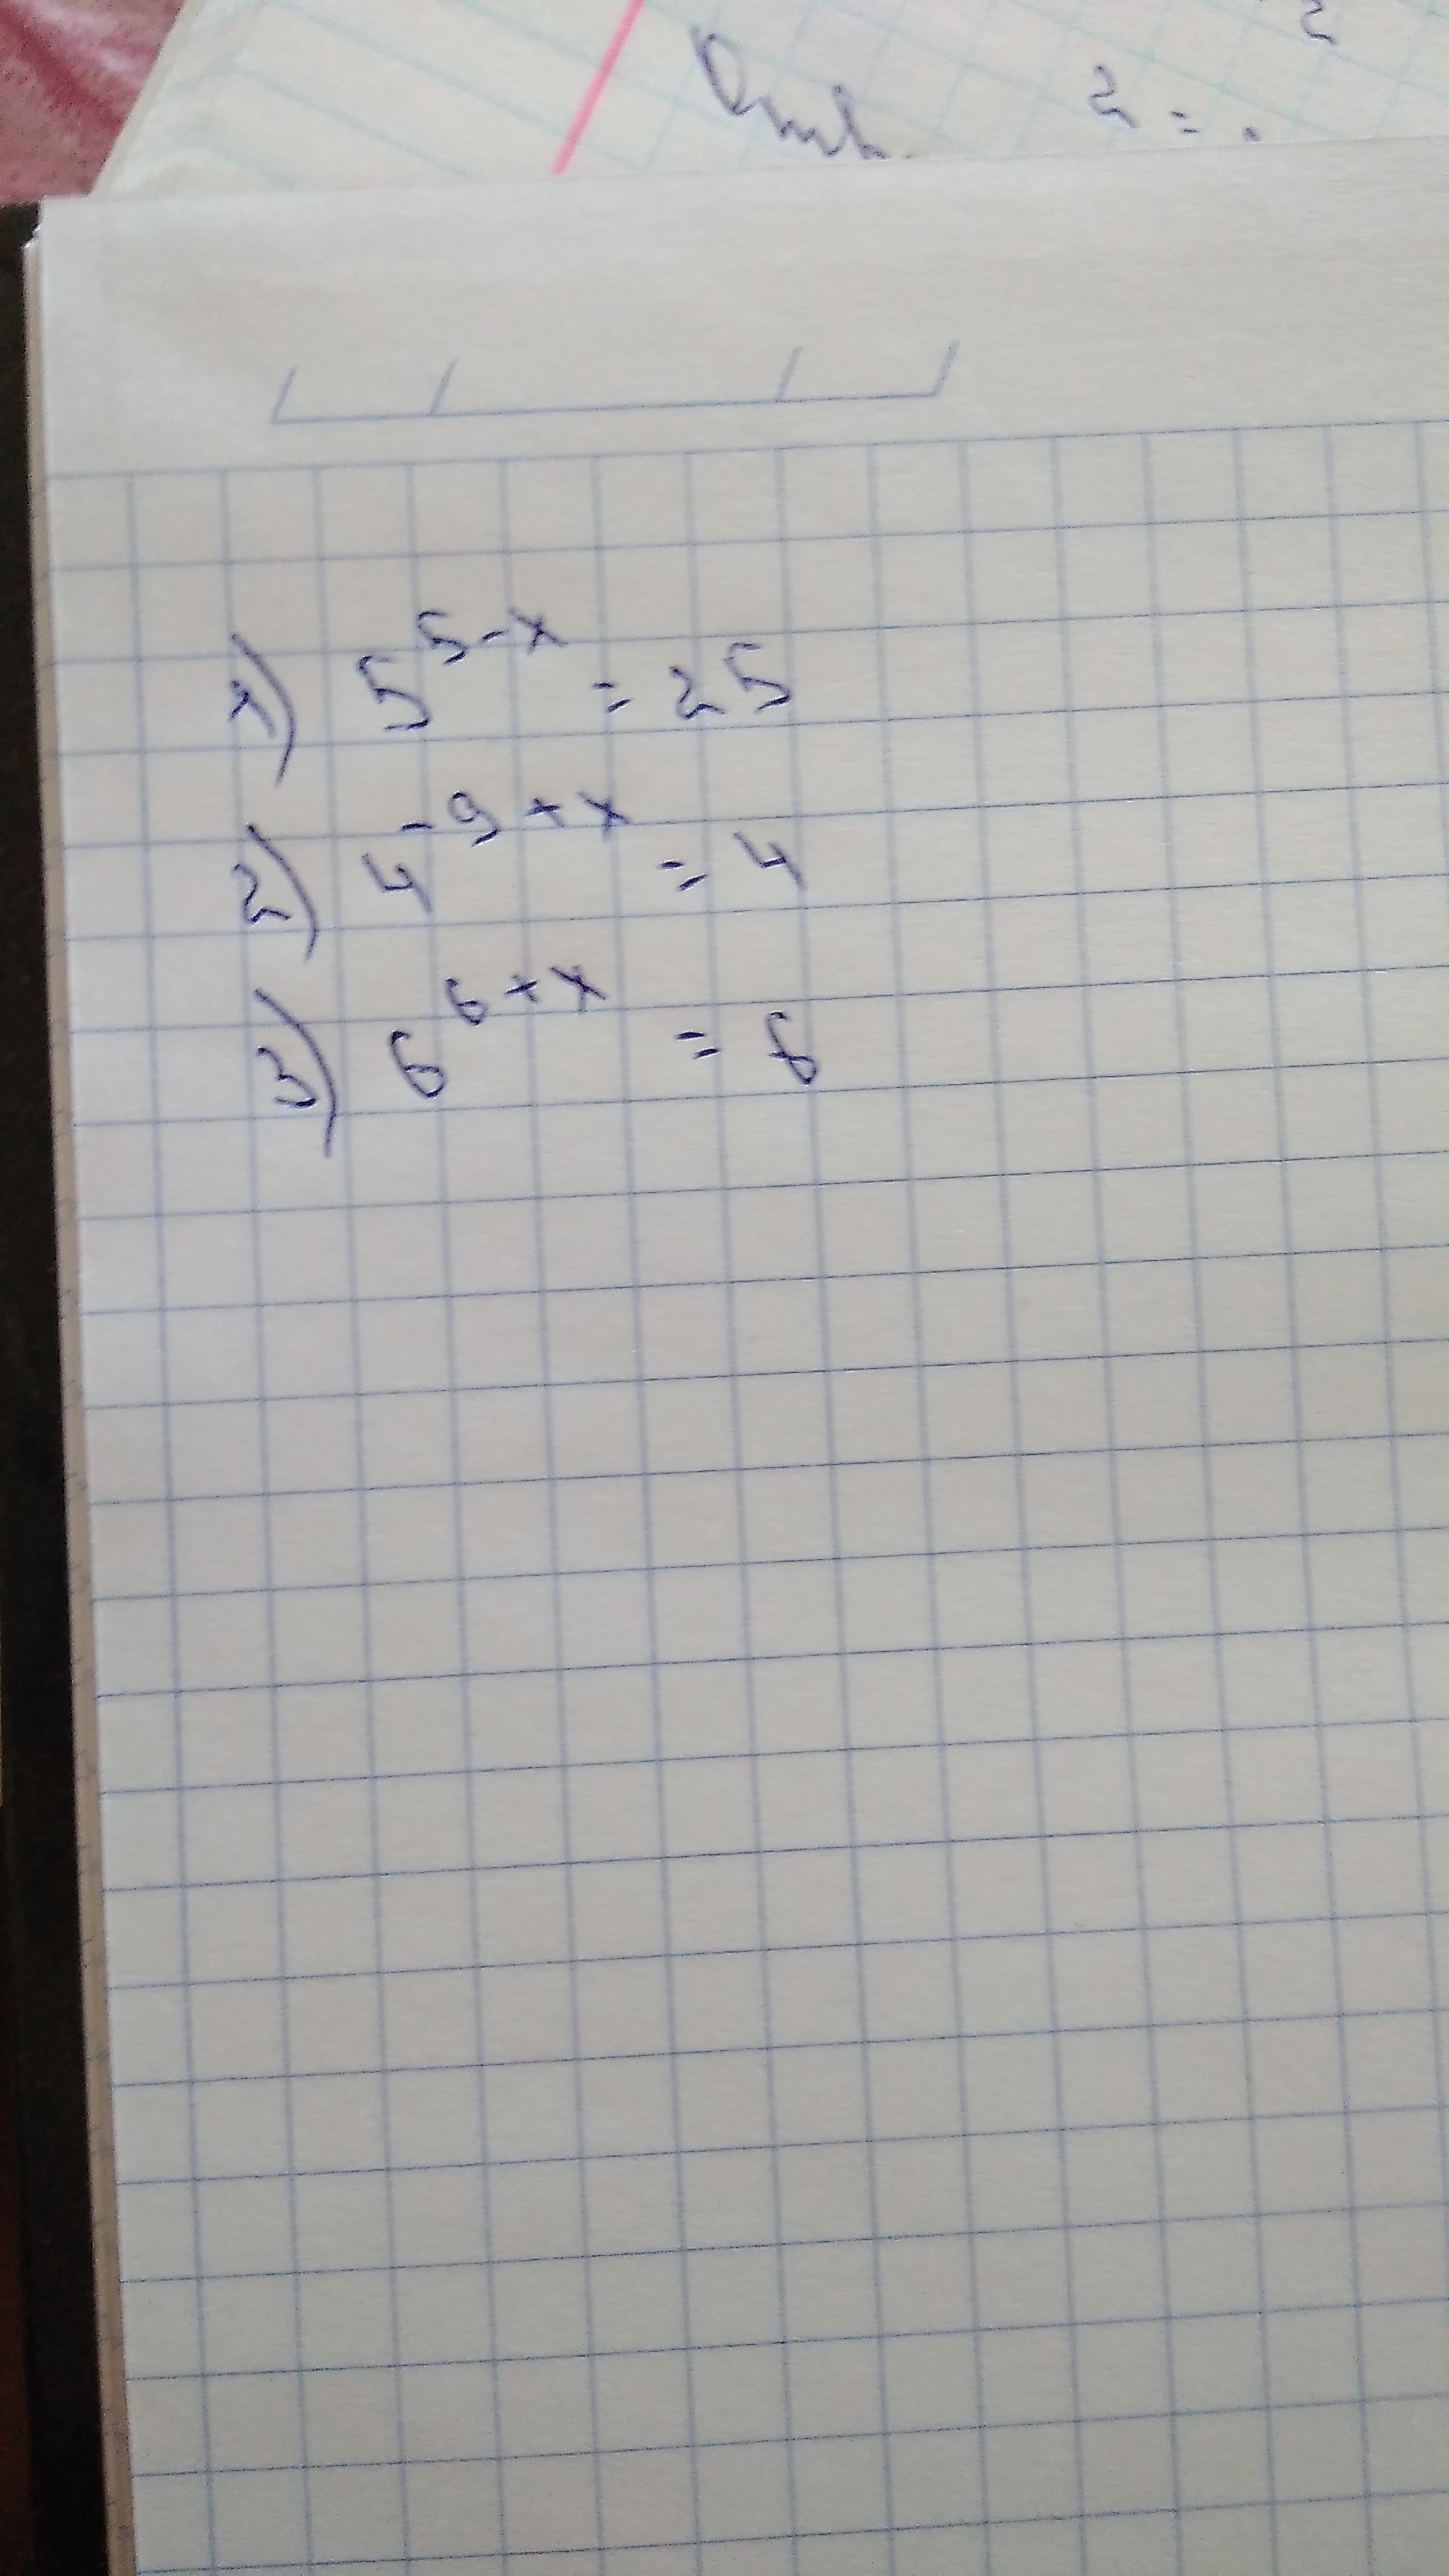 2
2 = .
1) 5^5-x = 25
2) 4^-9+x = 4
3) 6^6+x = 6